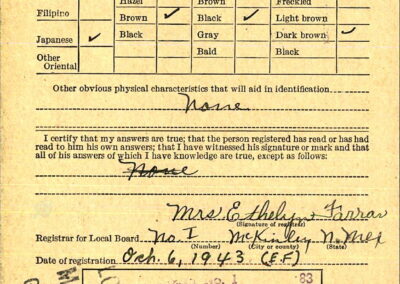 Hazel Brown Freckled
Filipino Brown ✓ Black ✓ Light brown
Japanese ✓ Black Gray Dark brown ✓
Other Bald Black
Oriental
Other obvious physical characteristics that will aid in identification
None
I certify that my answers are true; that the person registered has read or has had
read to him his own answers; that I have witnessed his signature or mark and that
all of his answers of which I have knowledge are true, except as follows:
None
Mrs Ethelyn Farrar
(Signature of registrar)
Registrar for Local Board No. 1 McKinley N. Mex
(Number) (City or county) (State)
Date of registration Oct. 6, 1943 (E.F)
1 83